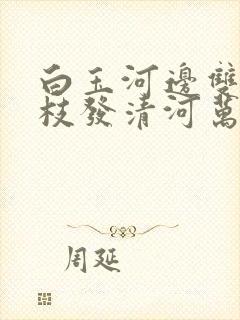 白玉河邊雙
枝發清河萬
周延